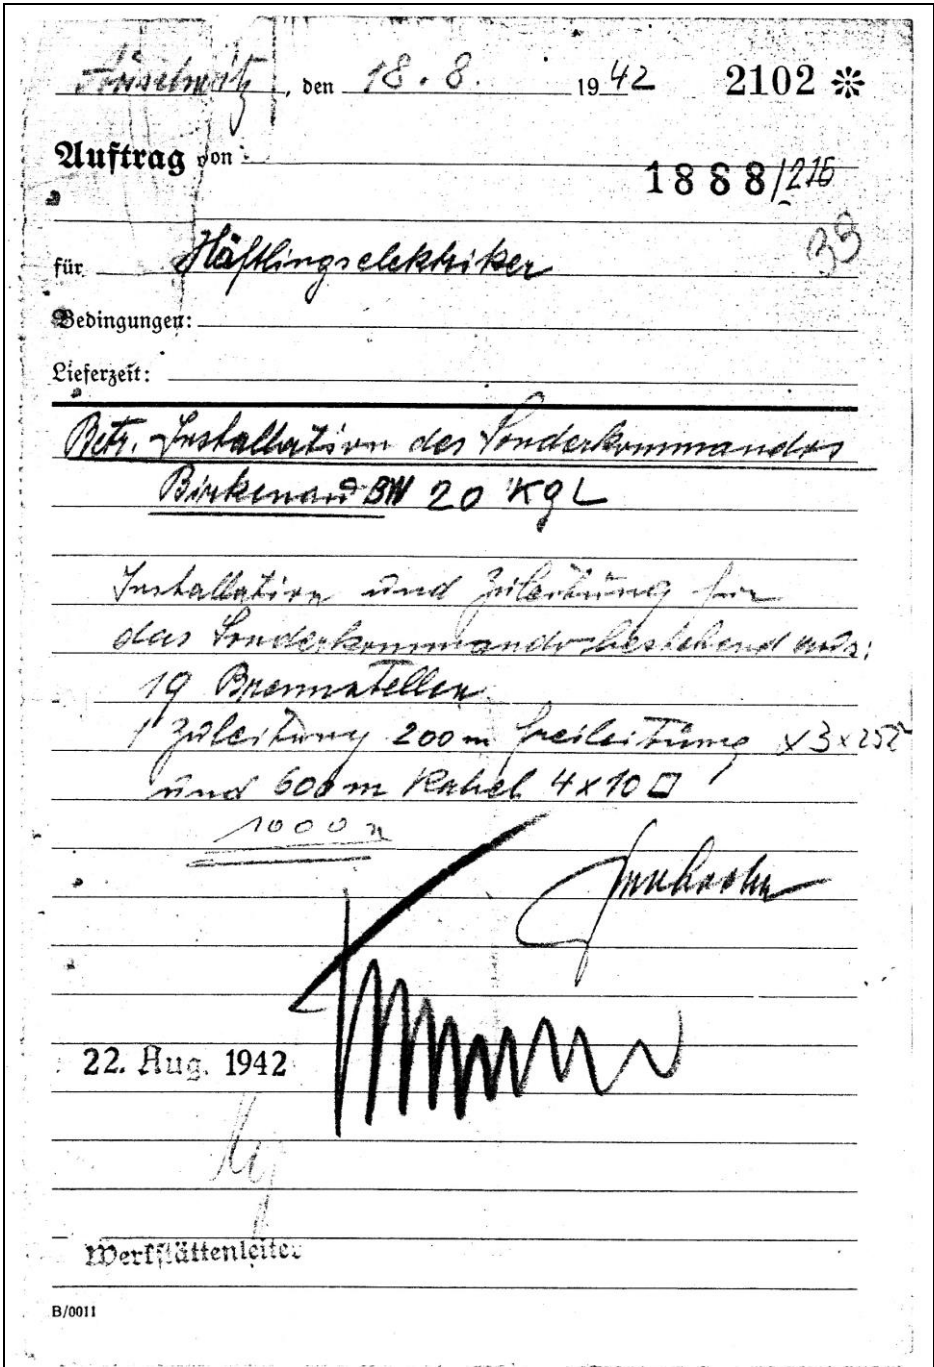 Auschwitz, den 18. 8. 1942 2102 ✻
Auftrag von:
1888/216
39
für Häftlingselektriker
Bedingungen:
Lieferzeit:
Betr. Installation des Sonderkommandos
Birkenau BW 20 KGL
Installation und Zuleitung für
das Sonderkommando bestehend aus:
19 Brennstellen
1 Zuleitung 200 m Freileitung x 3 x 25
und 600 m Kabel 4 x 10 □
1000
22. Aug. 1942
Werkstättenleiter
B/0011